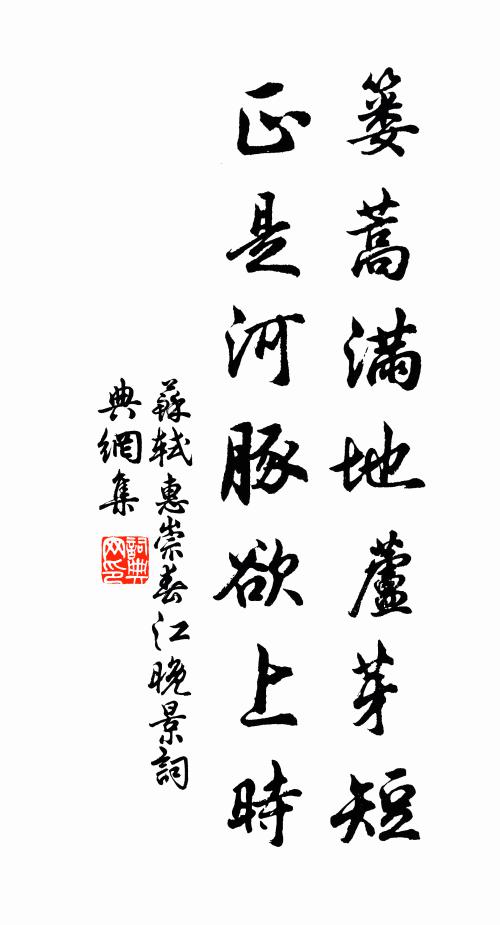 蔞蒿滿地蘆芽短
正是河豚欲上時
蘇軾惠崇春江晚景詞
典網集
詞典网印